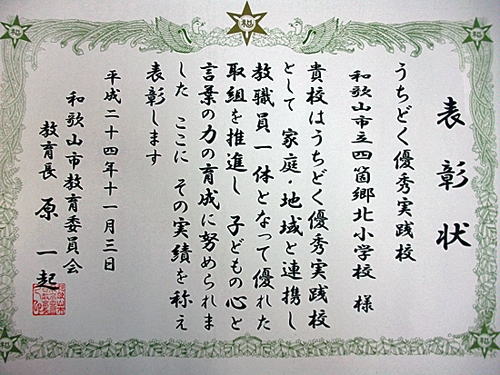 表彰状
うちどく優秀実践校
和歌山市立四箇郷北小学校 様
貴校はうちどく優秀実践校
として 家庭・地域と連携し
教職員一体となって優れた
取組を推進し 子どもの心と
言葉の力の育成に努められま
した ここに その実績を称え
表彰します
平成二十四年十一月三日
和歌山市教育委員会
教育長 原 一起